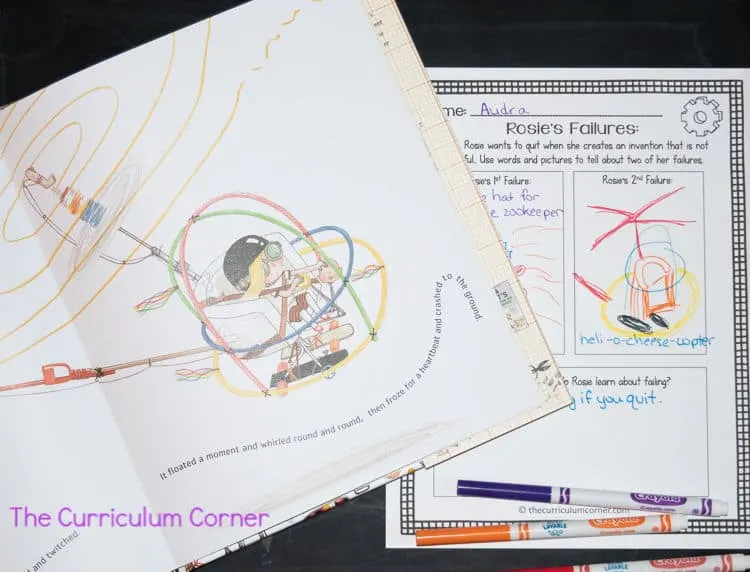 It floated a moment and whirled round and round, then froze for a heartbeat and crashed to the ground.
and twitched.
The Curriculum Corner
Audra
Rosie's Failures:
Rosie wants to quit when she creates an invention that is not
Use words and pictures to tell about two of her failures.
1st Failure:
hat for
zookeeper
Rosie's 2nd Failure:
heli-o-cheese-copter
Rosie learn about failing?
if you quit.
© thecurriculumcorner.com
Crayola
Crayola
WASHABLE
Crayola